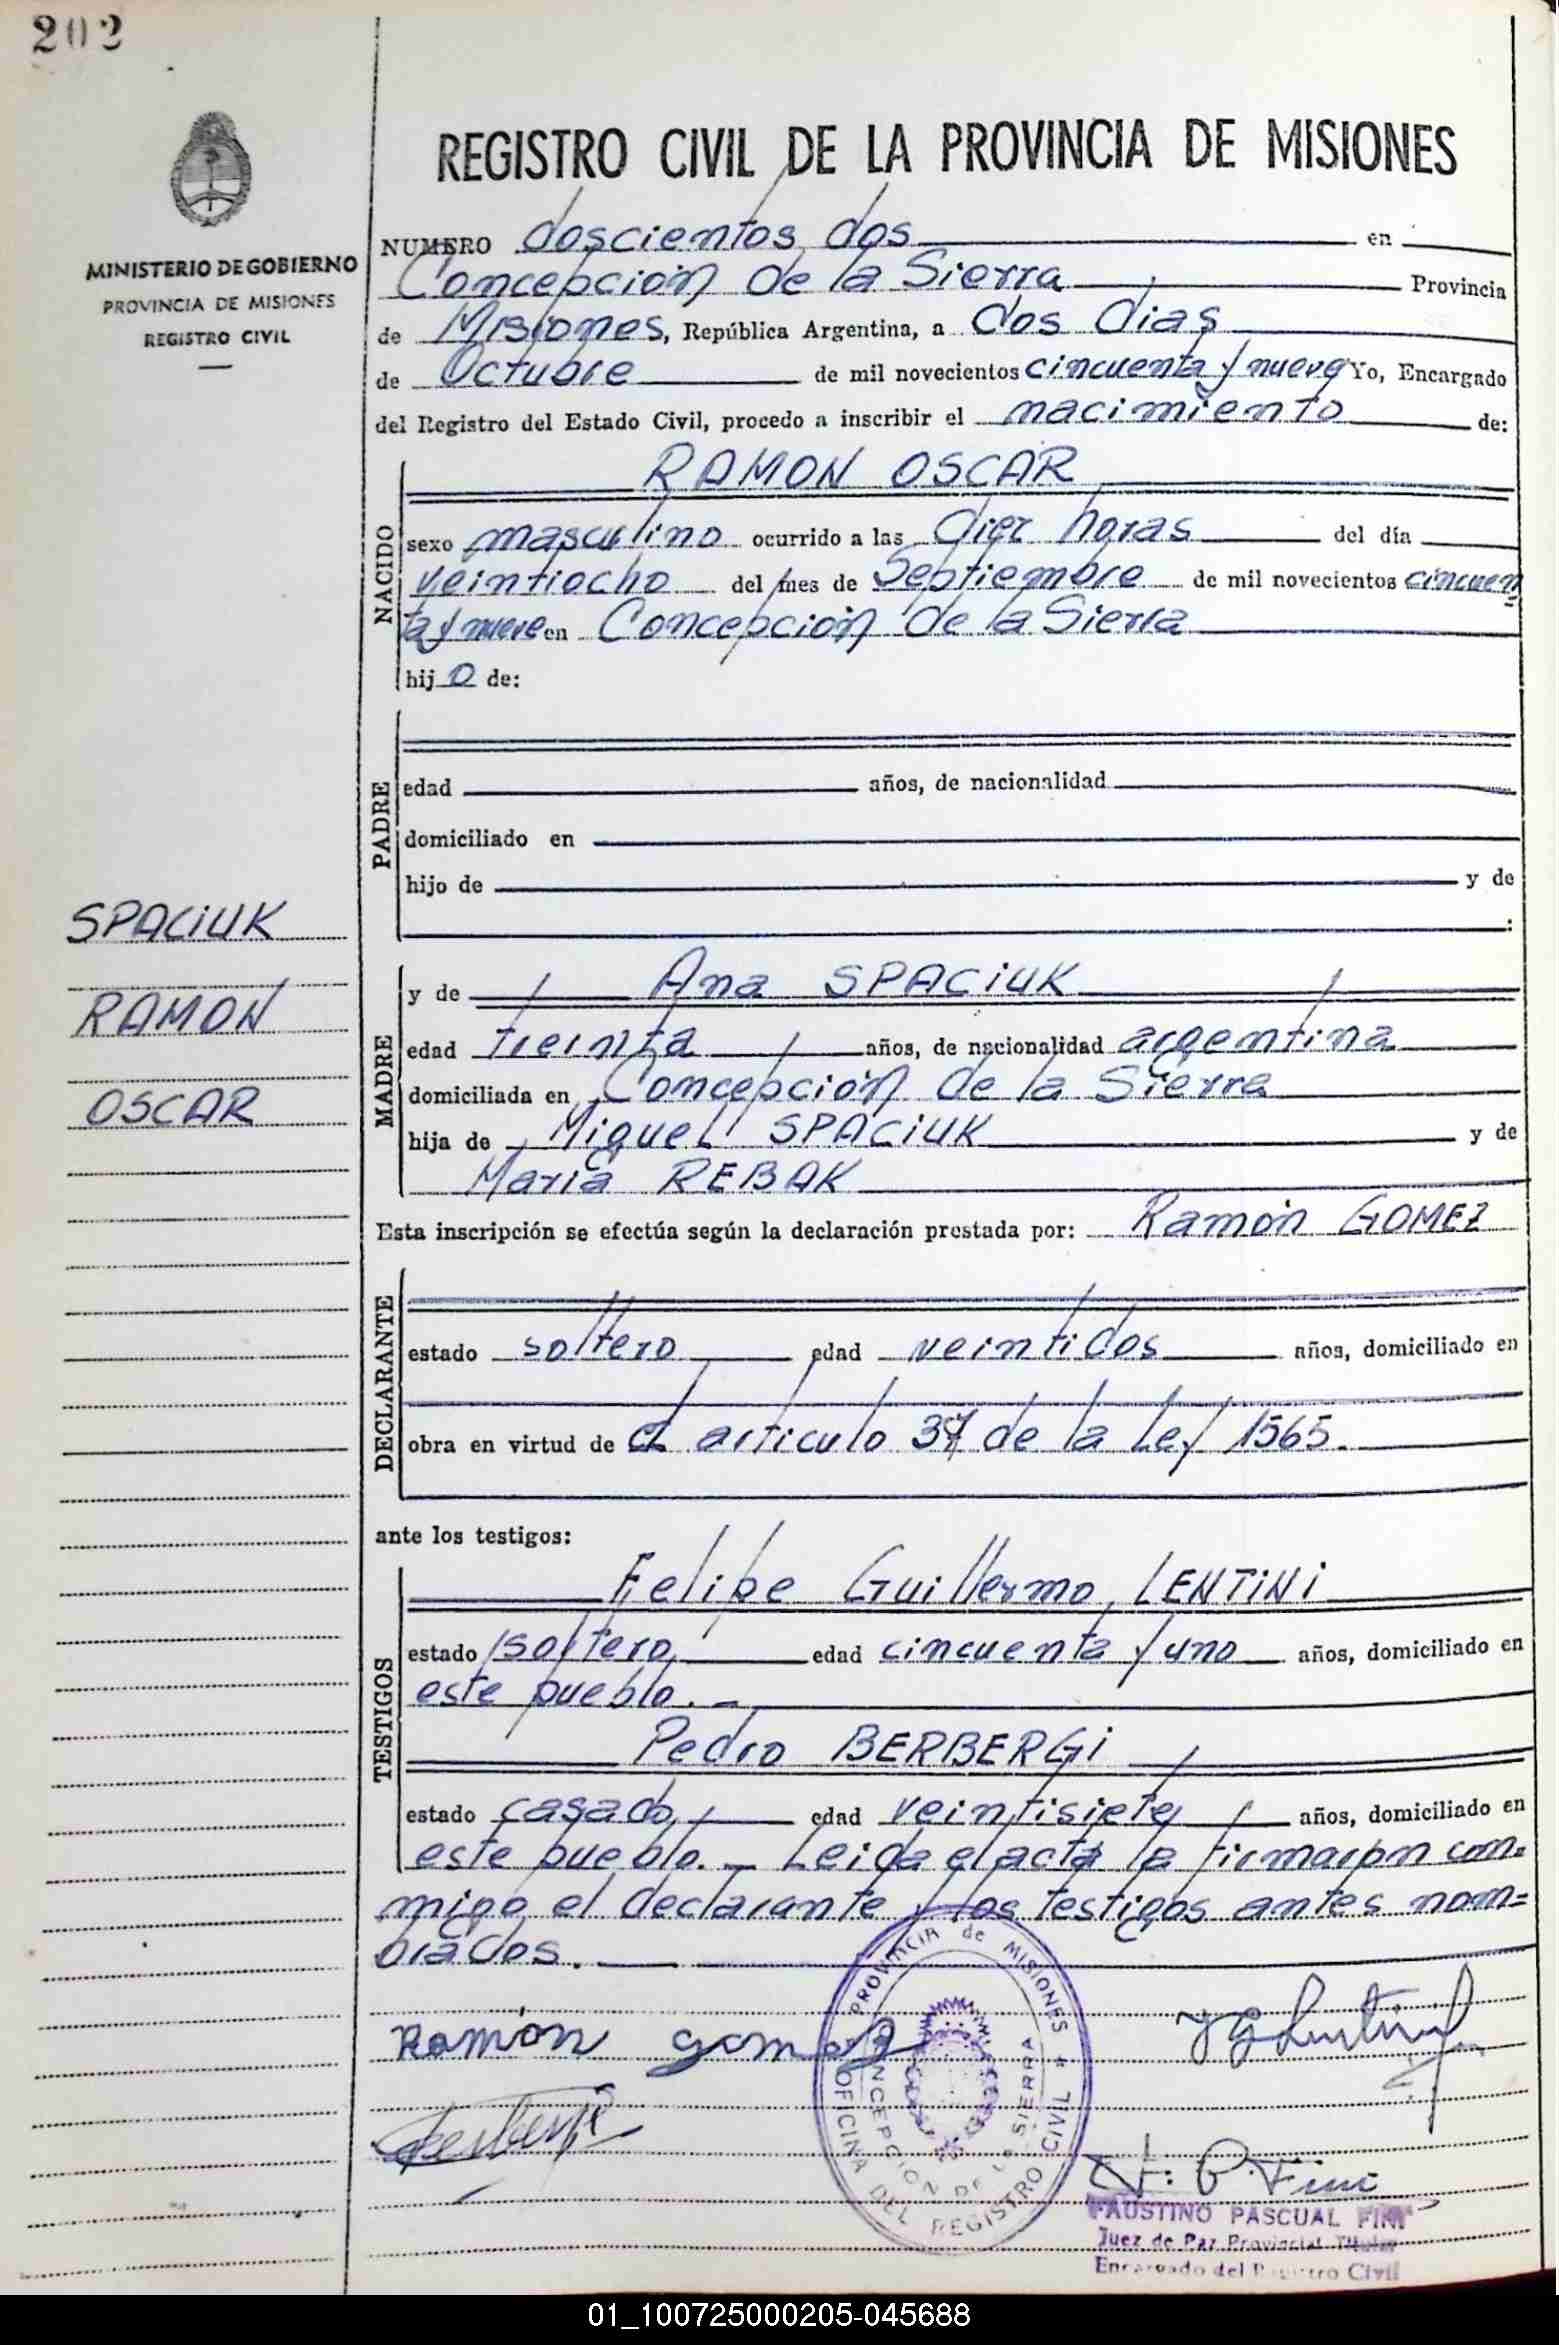 202
MINISTERIO DE GOBIERNO
PROVINCIA DE MISIONES
REGISTRO CIVIL
REGISTRO CIVIL DE LA PROVINCIA DE MISIONES
NUMERO doscientos dos en
Concepción de la Sierra Provincia
de Misiones, República Argentina, a dos dias
de Octubre de mil novecientos cincuenta y nueve Yo, Encargado
del Registro del Estado Civil, procedo a inscribir el nacimiento de:
NACIDO
RAMON OSCAR
sexo masculino ocurrido a las diez horas del día
veintiocho del mes de Septiembre de mil novecientos cincuen=
ta y nueve en Concepción de la Sierra
hijo de:
PADRE
edad años, de nacionalidad
domiciliado en
hijo de y de
:
SPACiUK
RAMON
OSCAR
MADRE
y de Ana SPACiUK
edad treinta años, de nacionalidad argentina
domiciliada en Concepción de la Sierra
hija de Miguel SPACiUK y de
María REBAK
Esta inscripción se efectúa según la declaración prestada por: Ramón GOMEZ
DECLARANTE
estado soltero edad veintidos años, domiciliado en
obra en virtud de el articulo 37 de la Ley 1565.
ante los testigos:
TESTIGOS
Felipe Guillermo LENTiNi
estado soltero edad cincuenta y uno años, domiciliado en
este pueblo.-
Pedro BERBERGi
estado casado edad veintisiete años, domiciliado en
este pueblo.- Leida el acta la firmaron con=
migo el declarante y los testigos antes nom=
brados.
Ramón Gomez
PROVINCIA de MISIONES
OFICINA DEL REGISTRO CIVIL
CONCEPCION DE LA SIERRA
F. P. Fini
FAUSTINO PASCUAL FINI
Juez de Paz Provincial Titular
Encargado del Registro Civil
01_100725000205-045688